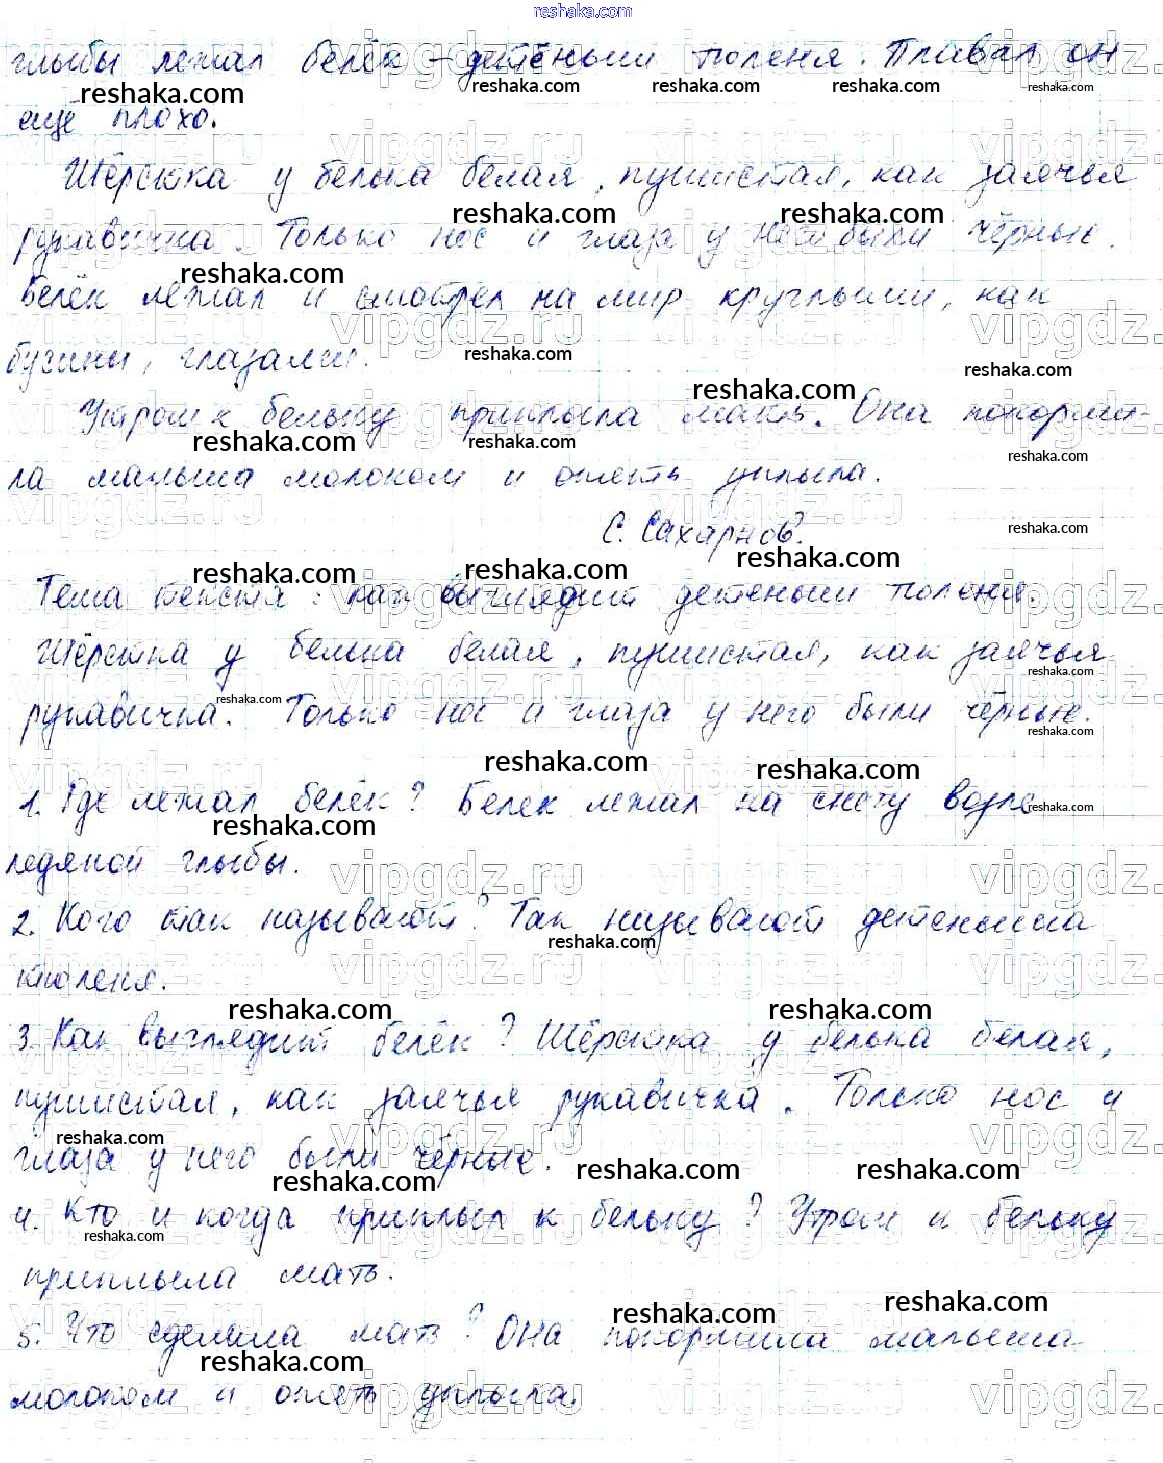 reshaka.com
глыбы лежал белёк – детёныш тюленя. Плавал он
ещё плохо.
Шёрстка у белька белая, пушистая, как заячья
рукавичка. Только нос и глаза у него были чёрные.
Белёк лежал и смотрел на мир круглыми, как
бусины, глазами.
Утром к бельку приплыла мать. Она покорми-
ла малыша молоком и опять уплыла.
С. Сахарнов.
Тема текста: как выглядит детеныш тюленя.
Шёрстка у белька белая, пушистая, как заячья
рукавичка. Только нос и глаза у него были чёрные.
1. Где лежал белёк? Белек лежал на снегу возле
ледяной глыбы.
2. Кого так называют? Так называют детеныша
тюленя.
3. Как выглядит белёк? Шёрстка у белька белая,
пушистая, как заячья рукавичка. Только нос и
глаза у него были чёрные.
4. Кто и когда приплыл к бельку? Утром к бельку
приплыла мать.
5. Что сделала мать? Она покормила малыша
молоком и опять уплыла.